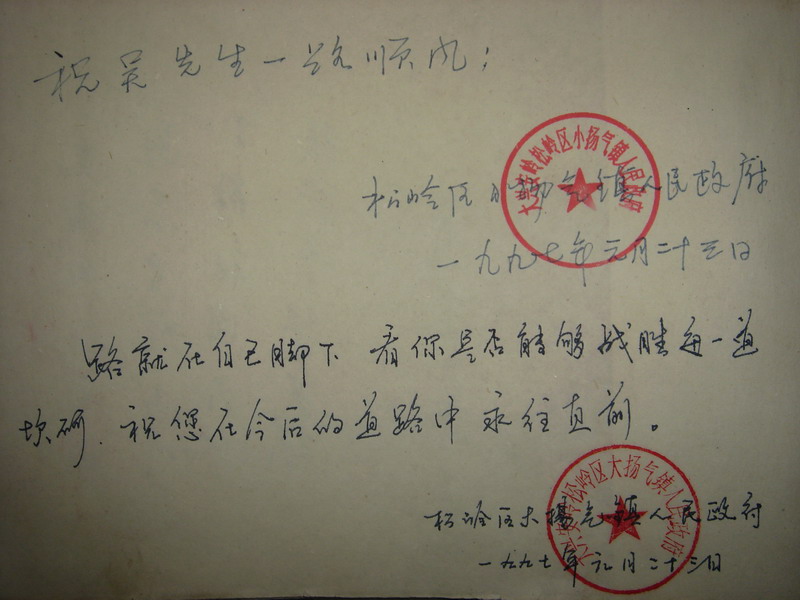 祝吴先生一路顺风；
大兴安岭松岭区小扬气镇人民政府
松岭区小扬气镇人民政府
一九九七年元月二十三日
路就在自己脚下 看你是否能够战胜每一道
坎坷．祝您在今后的道路中永往直前。
大兴安岭松岭区大扬气镇人民政府
松岭区大扬气镇人民政府
一九九七年元月二十三日